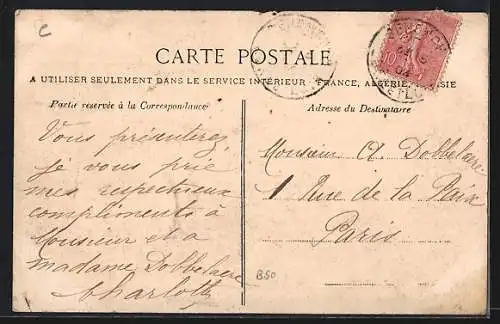 C
CARTE POSTALE
A UTILISER SEULEMENT DANS LE SERVICE INTÉRIEUR FRANCE, ALGÉRIE,
Partie réservée à la Correspondance
Adresse du Destinataire
Vous présenterez
je vous prie
mes respectueux
compliments à
Monsieur et a
madame Dobbelaere
Charlotte
Monsieur A. Dobbelaere
1 Rue de la Paix
Paris
B50